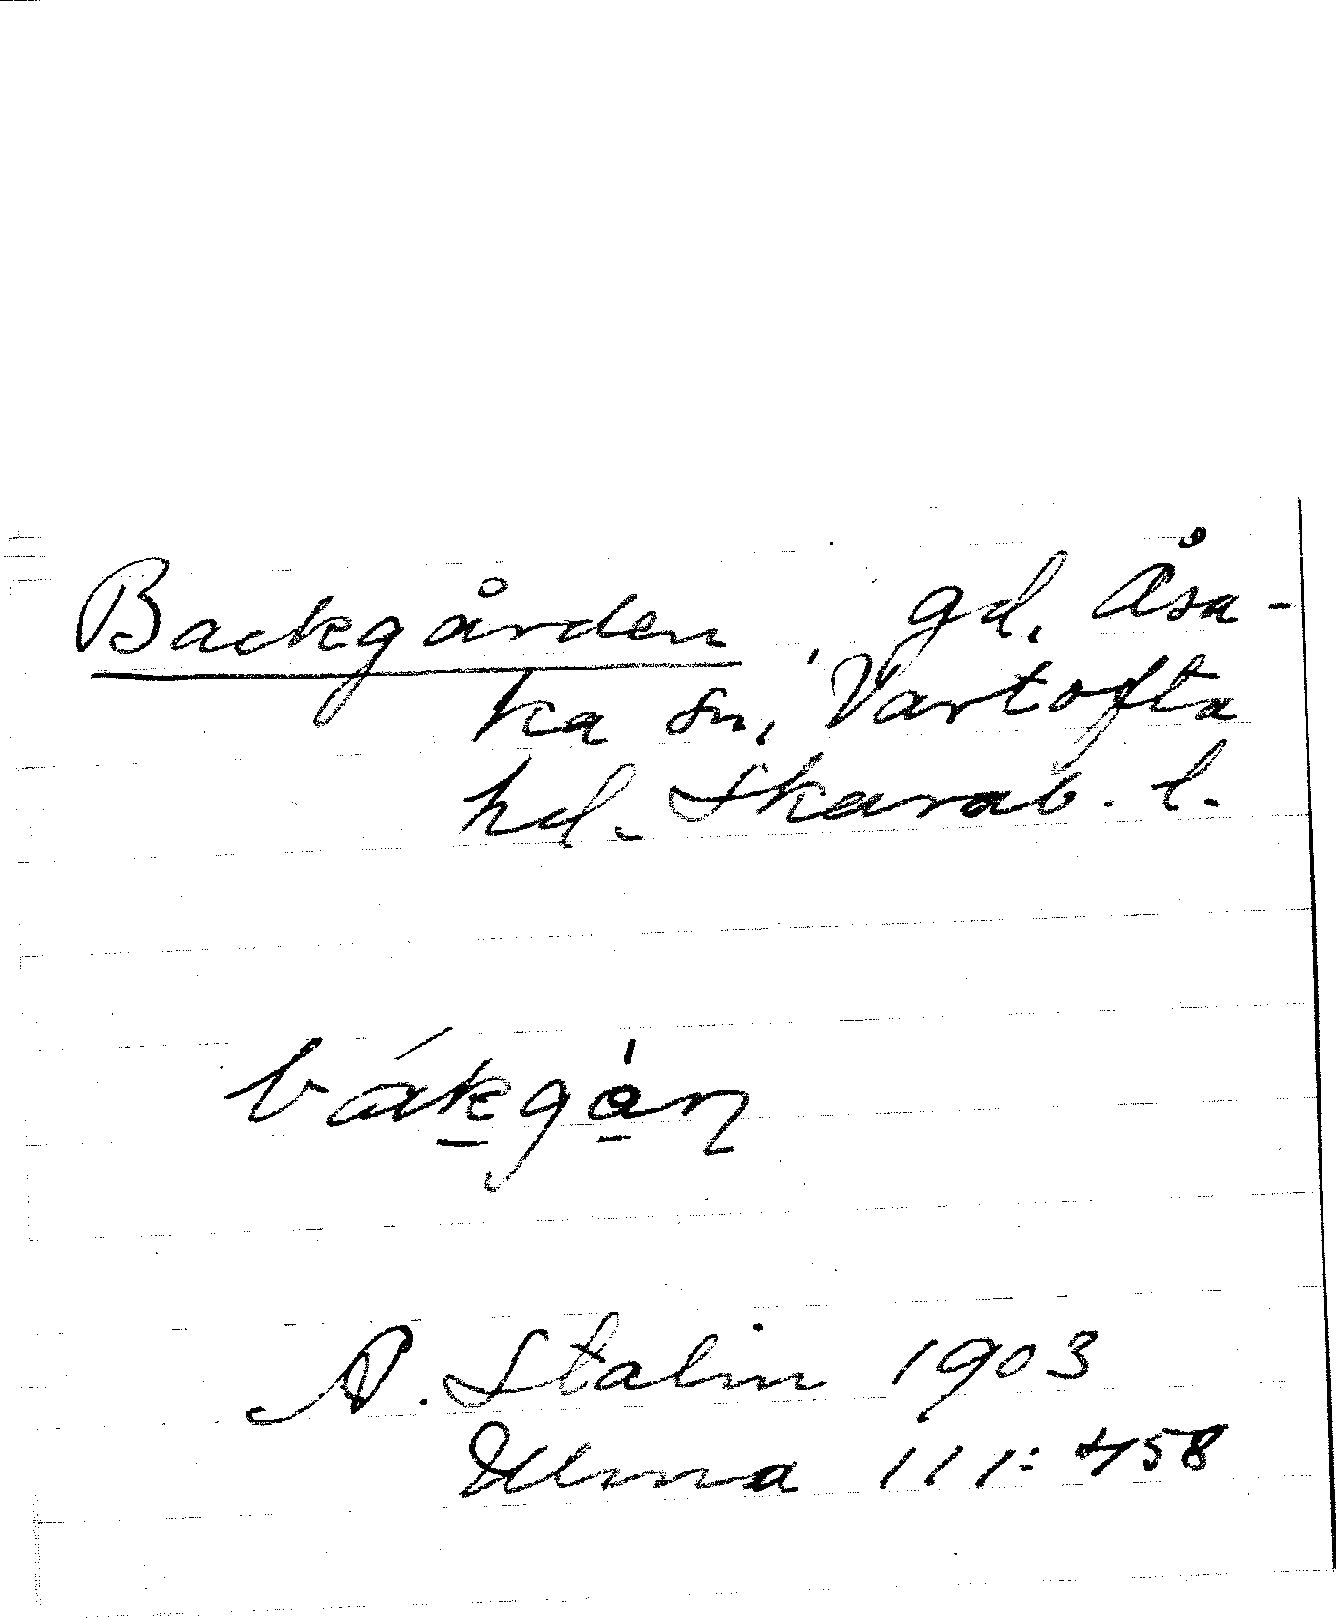 Backgården, gd, Åsa-
ka sn, Vartofta
hd. Skarab. l.
bák̲gǻ̲ɳ
A. Stalin 1903
Ulma 111:458